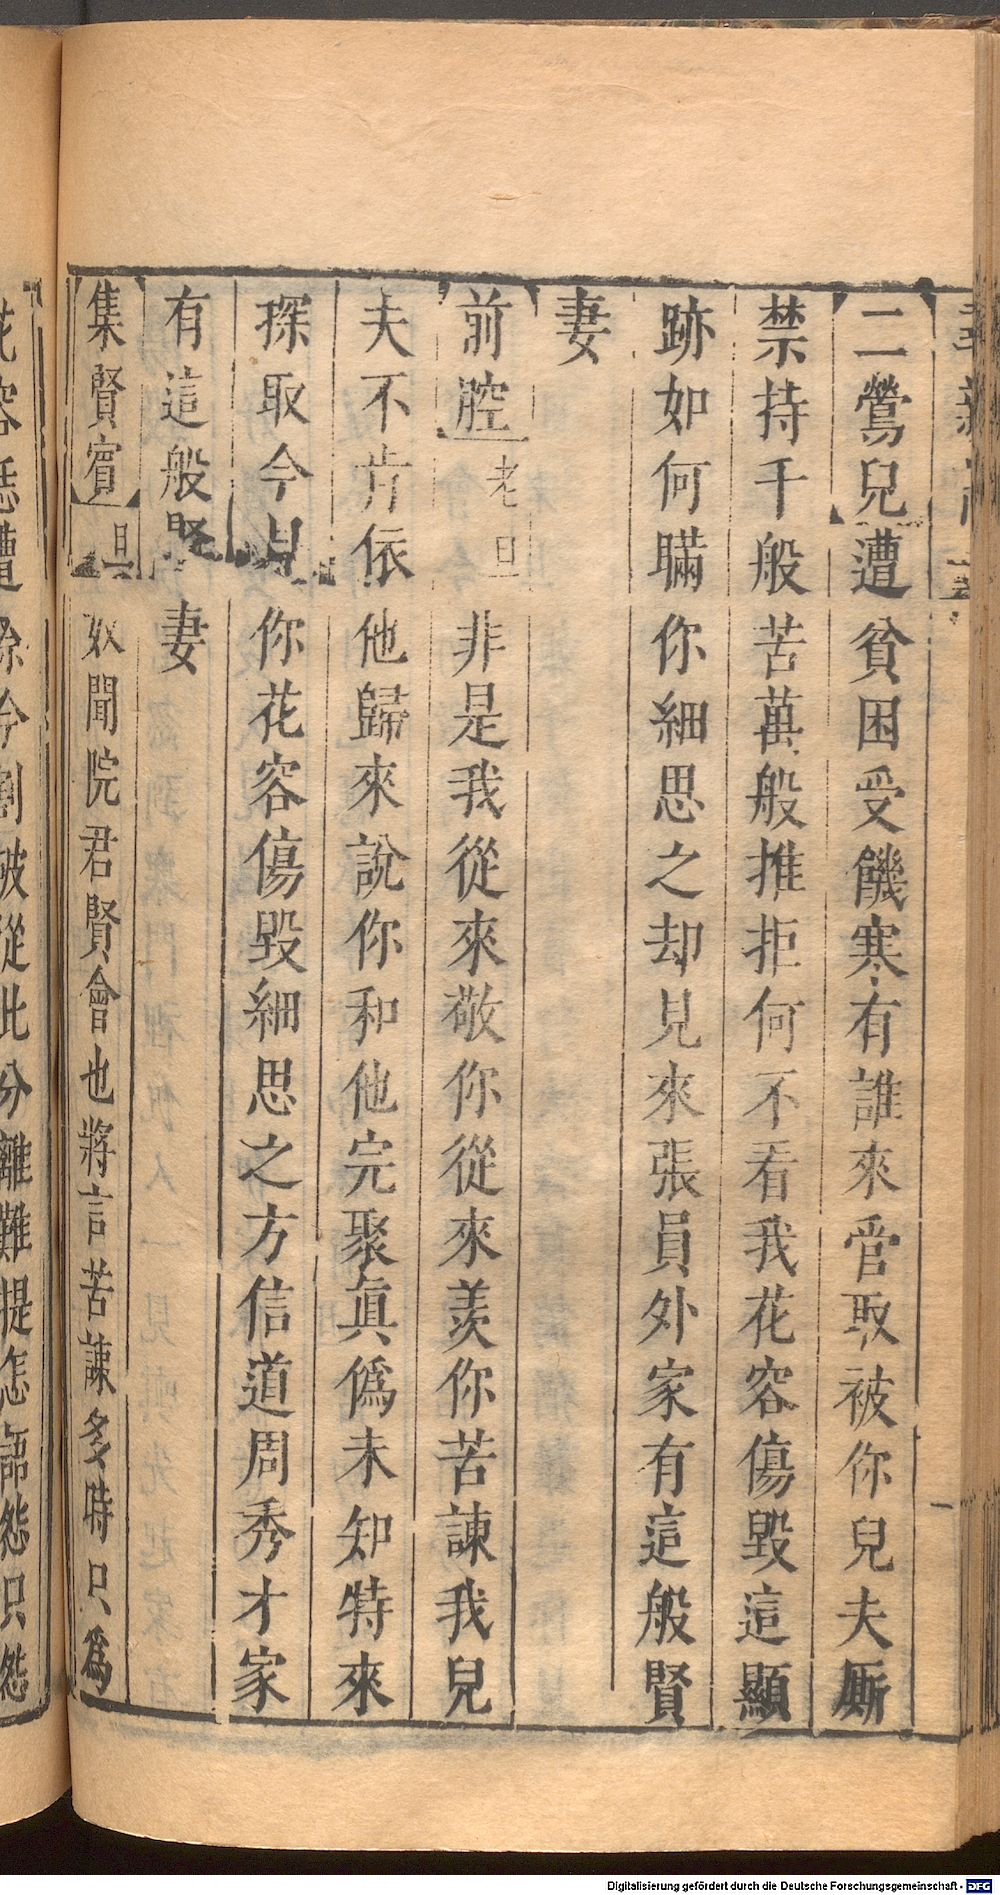 二鶯兒遭貧困受饑寒有誰來管取被你兒夫厮
禁持千般苦萬般推拒何不看我花容傷毀這顯
跡如何瞞你細思之却見來張員外家有這般賢
妻
前腔老旦非是我從來敬你從來羨你苦諫我兒
夫不肯依他歸來說你和他完聚眞僞未知特來
探取今見你花容傷毀細思之方信道周秀才家
有這般堅妻
集賢賓旦奴聞院君賢會也將言苦諫多時只為
花容恁遭 今割破從此分離難提怎語怨只怨
Digitalisierung gefördert durch die Deutsche Forschungsgemeinschaft - DFG